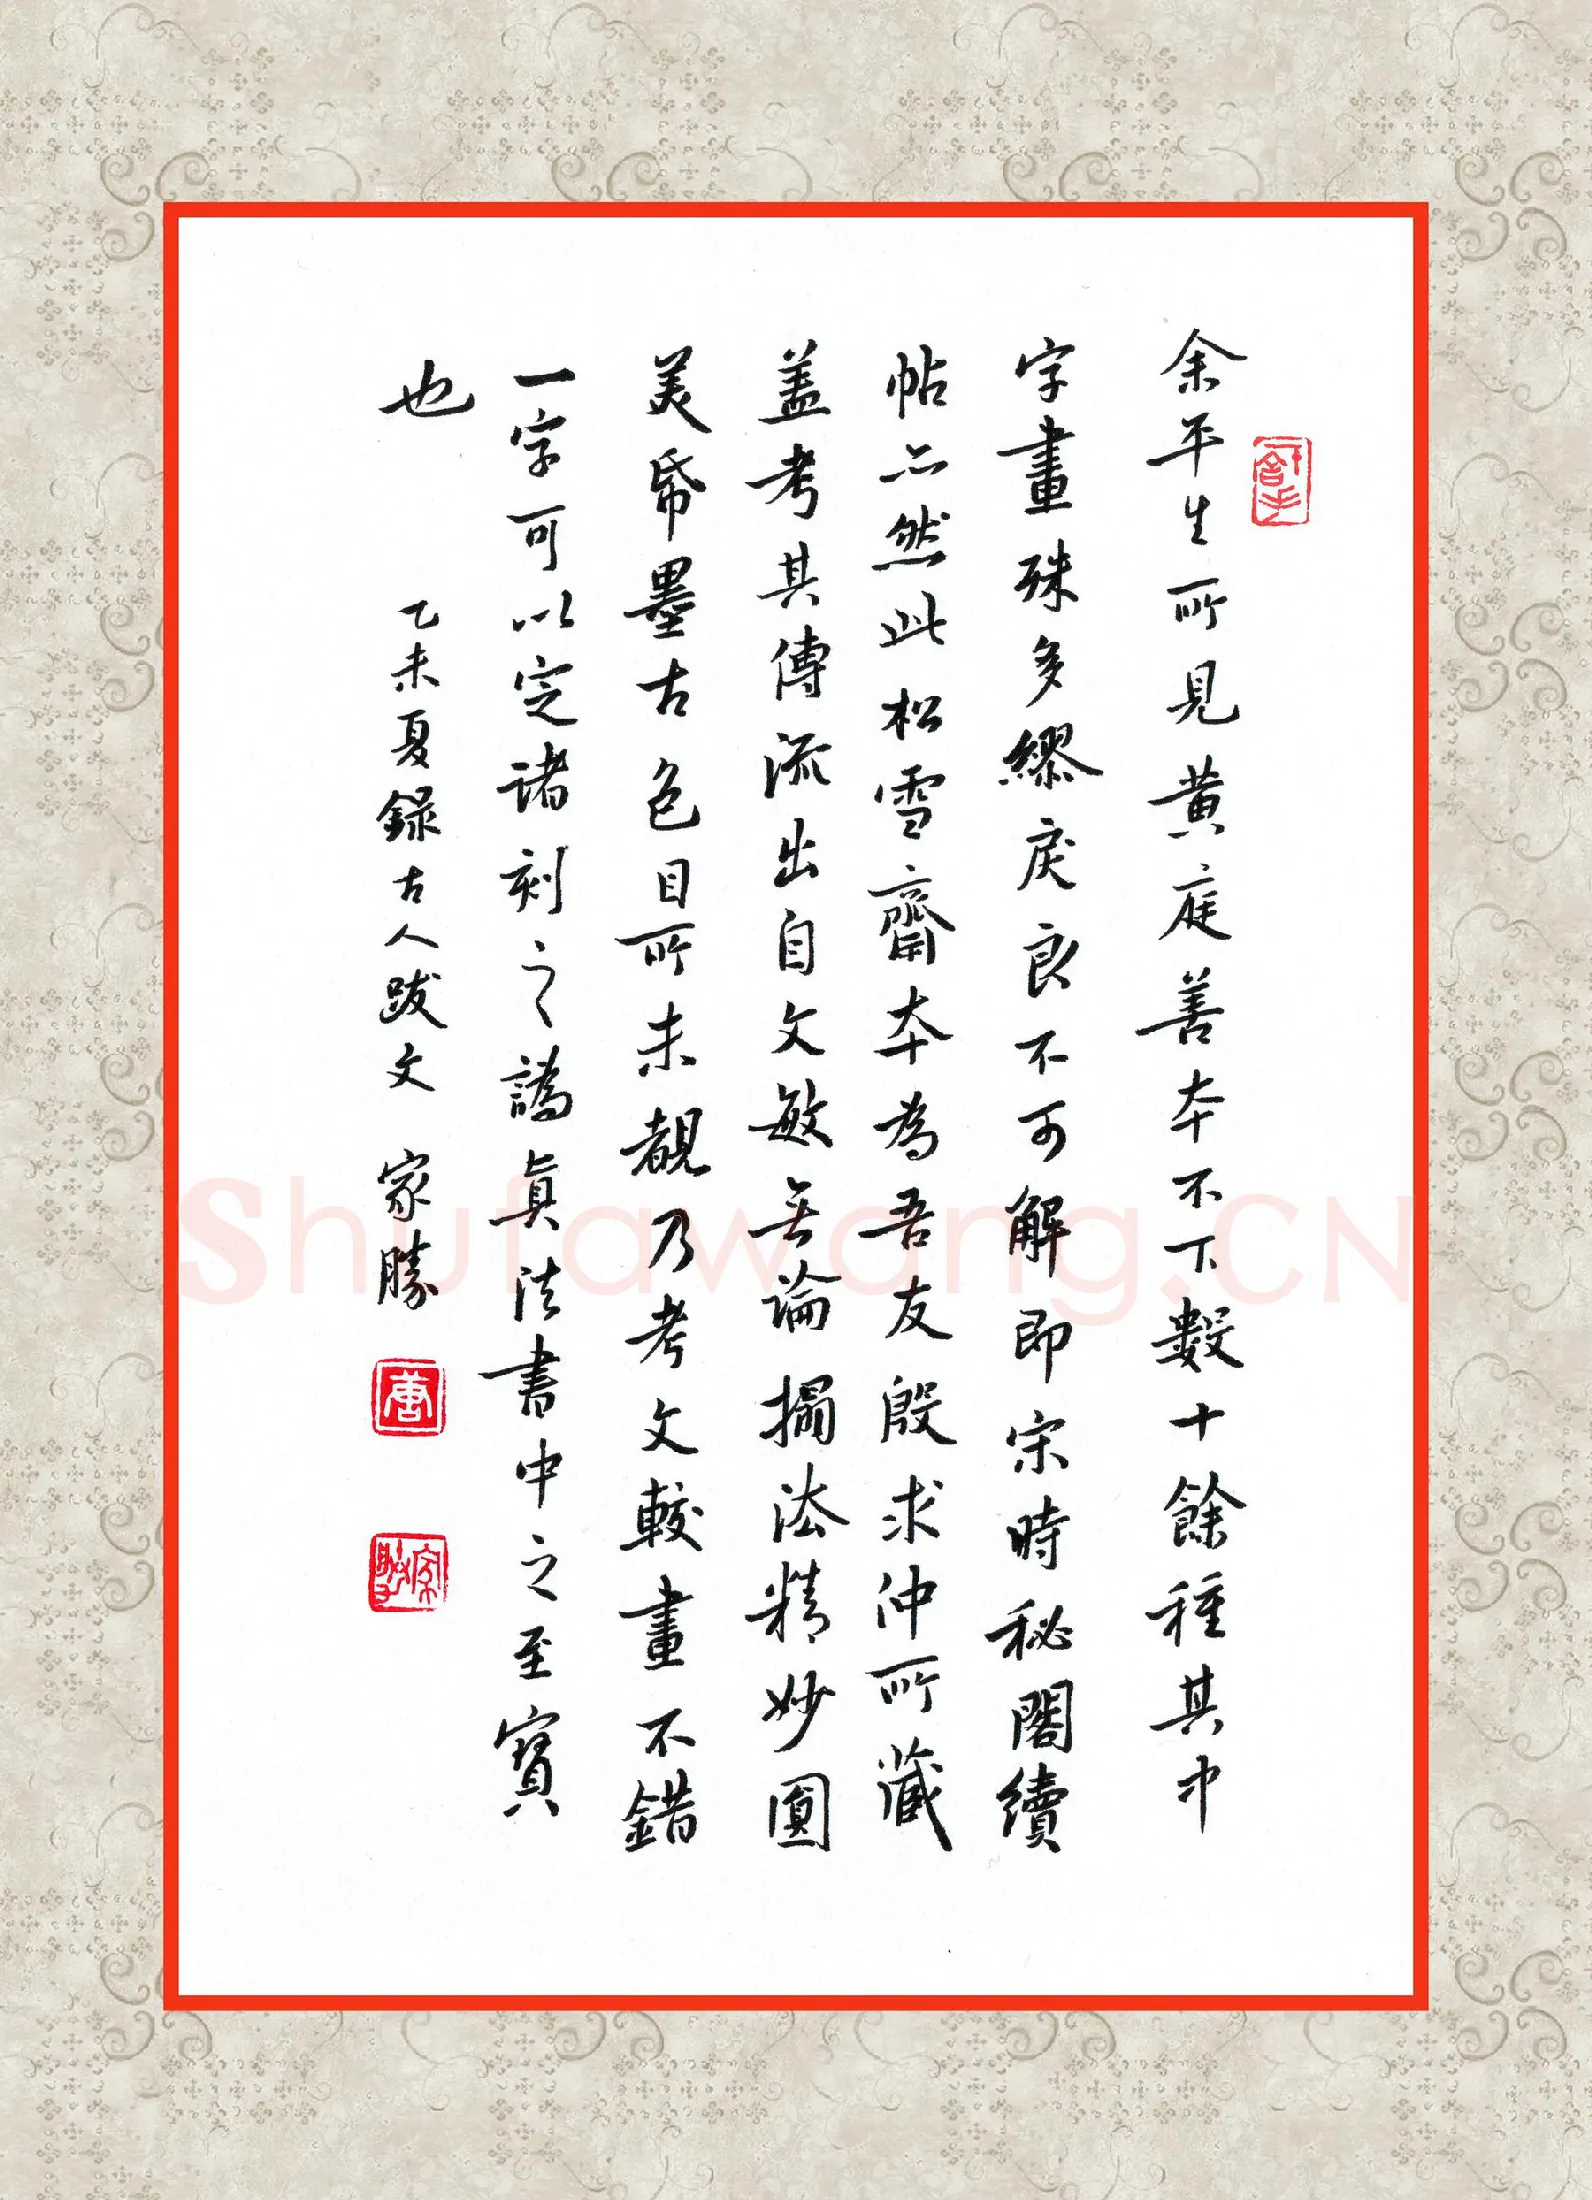 余平生所見黄庭善本不下數十餘種其中
字畫殊多繆戾良不可解即宋時秘閣續
帖亦然此松雪齋本為吾友殷求仲所藏
盖考其傳流出自文敏無論搨法精妙圓
美帋墨古色目所未覩乃考文較畫不錯
一字可以定諸刻之譌真法書中之至寶
也
乙未夏録古人跋文 家勝
唐
家勝
Shufawang.CN